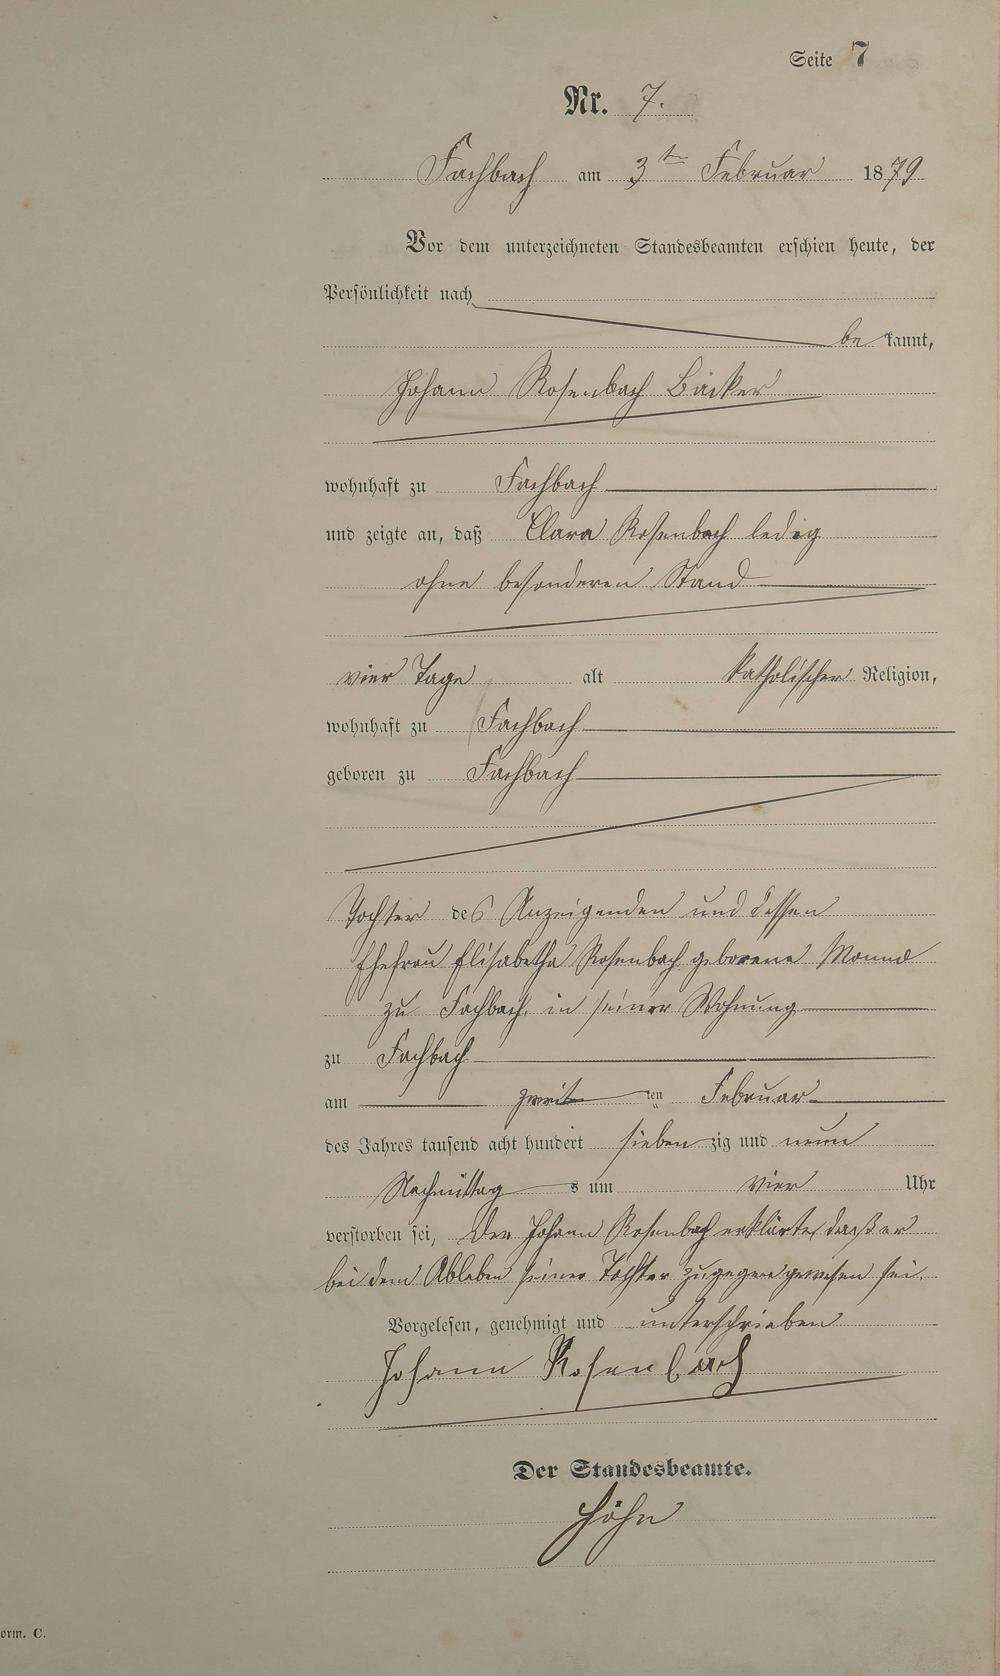 Seite 7
Nr. 7.
Fachbach am 3ten Februar 1879
Vor dem unterzeichneten Standesbeamten erschien heute, der
Persönlichkeit nach
be kannt,
Johann Rosenbach Bäcker
wohnhaft zu Fachbach
und zeigte an, daß Clara Rosenbach ledig
ohne besonderen Stand
vier Tage alt katholischer Religion,
wohnhaft zu Fachbach
geboren zu Fachbach
Tochter des Anzeigenden und dessen
Ehefrau Elisabetha Rosenbach geborene
zu Fachbach, in seiner Wohnung
zu Fachbach
am zweit ten Februar
des Jahres tausend acht hundert sieben zig und neun
Nachmittag s um vier Uhr
verstorben sei, Der Johann Rosenbach erklärte, daß er
bei dem Ableben seiner Tochter zugegen gewesen sei.
Vorgelesen, genehmigt und unterschrieben
Johann Rosenbach
Der Standesbeamte.
Höhn
orm. C.